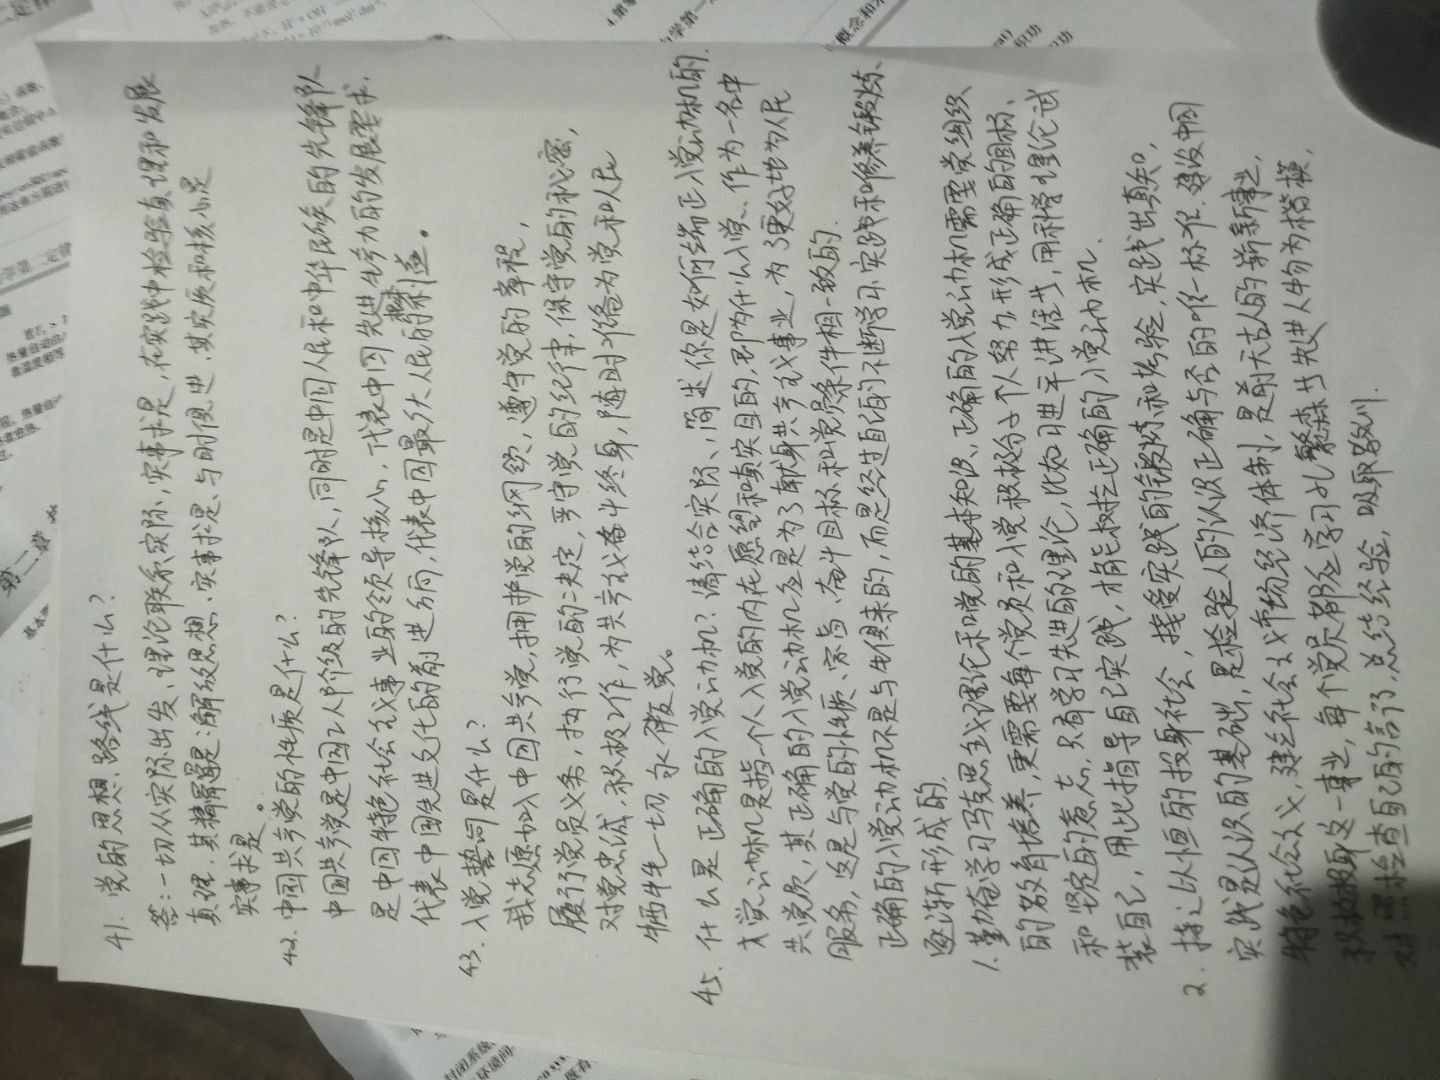 41. 党的思想路线是什么?
答:一切从实际出发,理论联系实际,实事求是,在实践中检验真理和发展
真理.其精髓是:解放思想、实事求是、与时俱进.其实质和核心是
实事求是.
42.中国共产党的性质是什么?
中国共产党是中国工人阶级的先锋队,同时是中国人民和中华民族的先锋队
是中国特色社会主义事业的领导核心,代表中国先进生产力的发展要求,
代表中国先进文化的前进方向,代表中国最广大人民的根本利益。
43.入党誓词是什么?
我志愿加入中国共产党,拥护党的纲领,遵守党的章程,
履行党员义务,执行党的决定,严守党的纪律,保守党的秘密,
对党忠诚,积极工作,为共产主义奋斗终身,随时准备为党和人民
牺牲一切,永不叛党。
45.什么是正确的入党动机?请结合实际,简述你是如何端正入党动机的.
入党动机是指个人入党的内在愿望和真实目的,即为什么入党.作为一名中
共党员,其正确的入党动机应是为了献身共产主义事业,为了更好地为人民
服务,这是与党的性质、宗旨、奋斗目标和党员条件相一致的.
正确的入党动机不是与生俱来的,而是经过自的不断学习、实践和修养锻炼、
逐渐形成的.
1.勤奋学习马克思主义理论和党的基本知识,正确的入党动机需要党组织
的教育培养,更需要每个党员和入党积极分子个人努力,形成正确的目标、
和坚定的意志.只有学习先进的理论,比如习近平讲话等,用科学理论武
装自己,用此指导自己实践,才能树立正确的入党动机.
2.持之以恒的投身社会,接受实践的锻炼和考验,实践出真知,
实践是认识的基础,是检验人的认识正确与否的唯一标准.建设中国
特色社会主义,建立社会主义市场经济体制,是前无古人的崭新事业,
积极投身这一事业,每个党员都应学习孔繁森等先进人物为楷模,
对照检查自己的言行,总结经验,吸取教训.